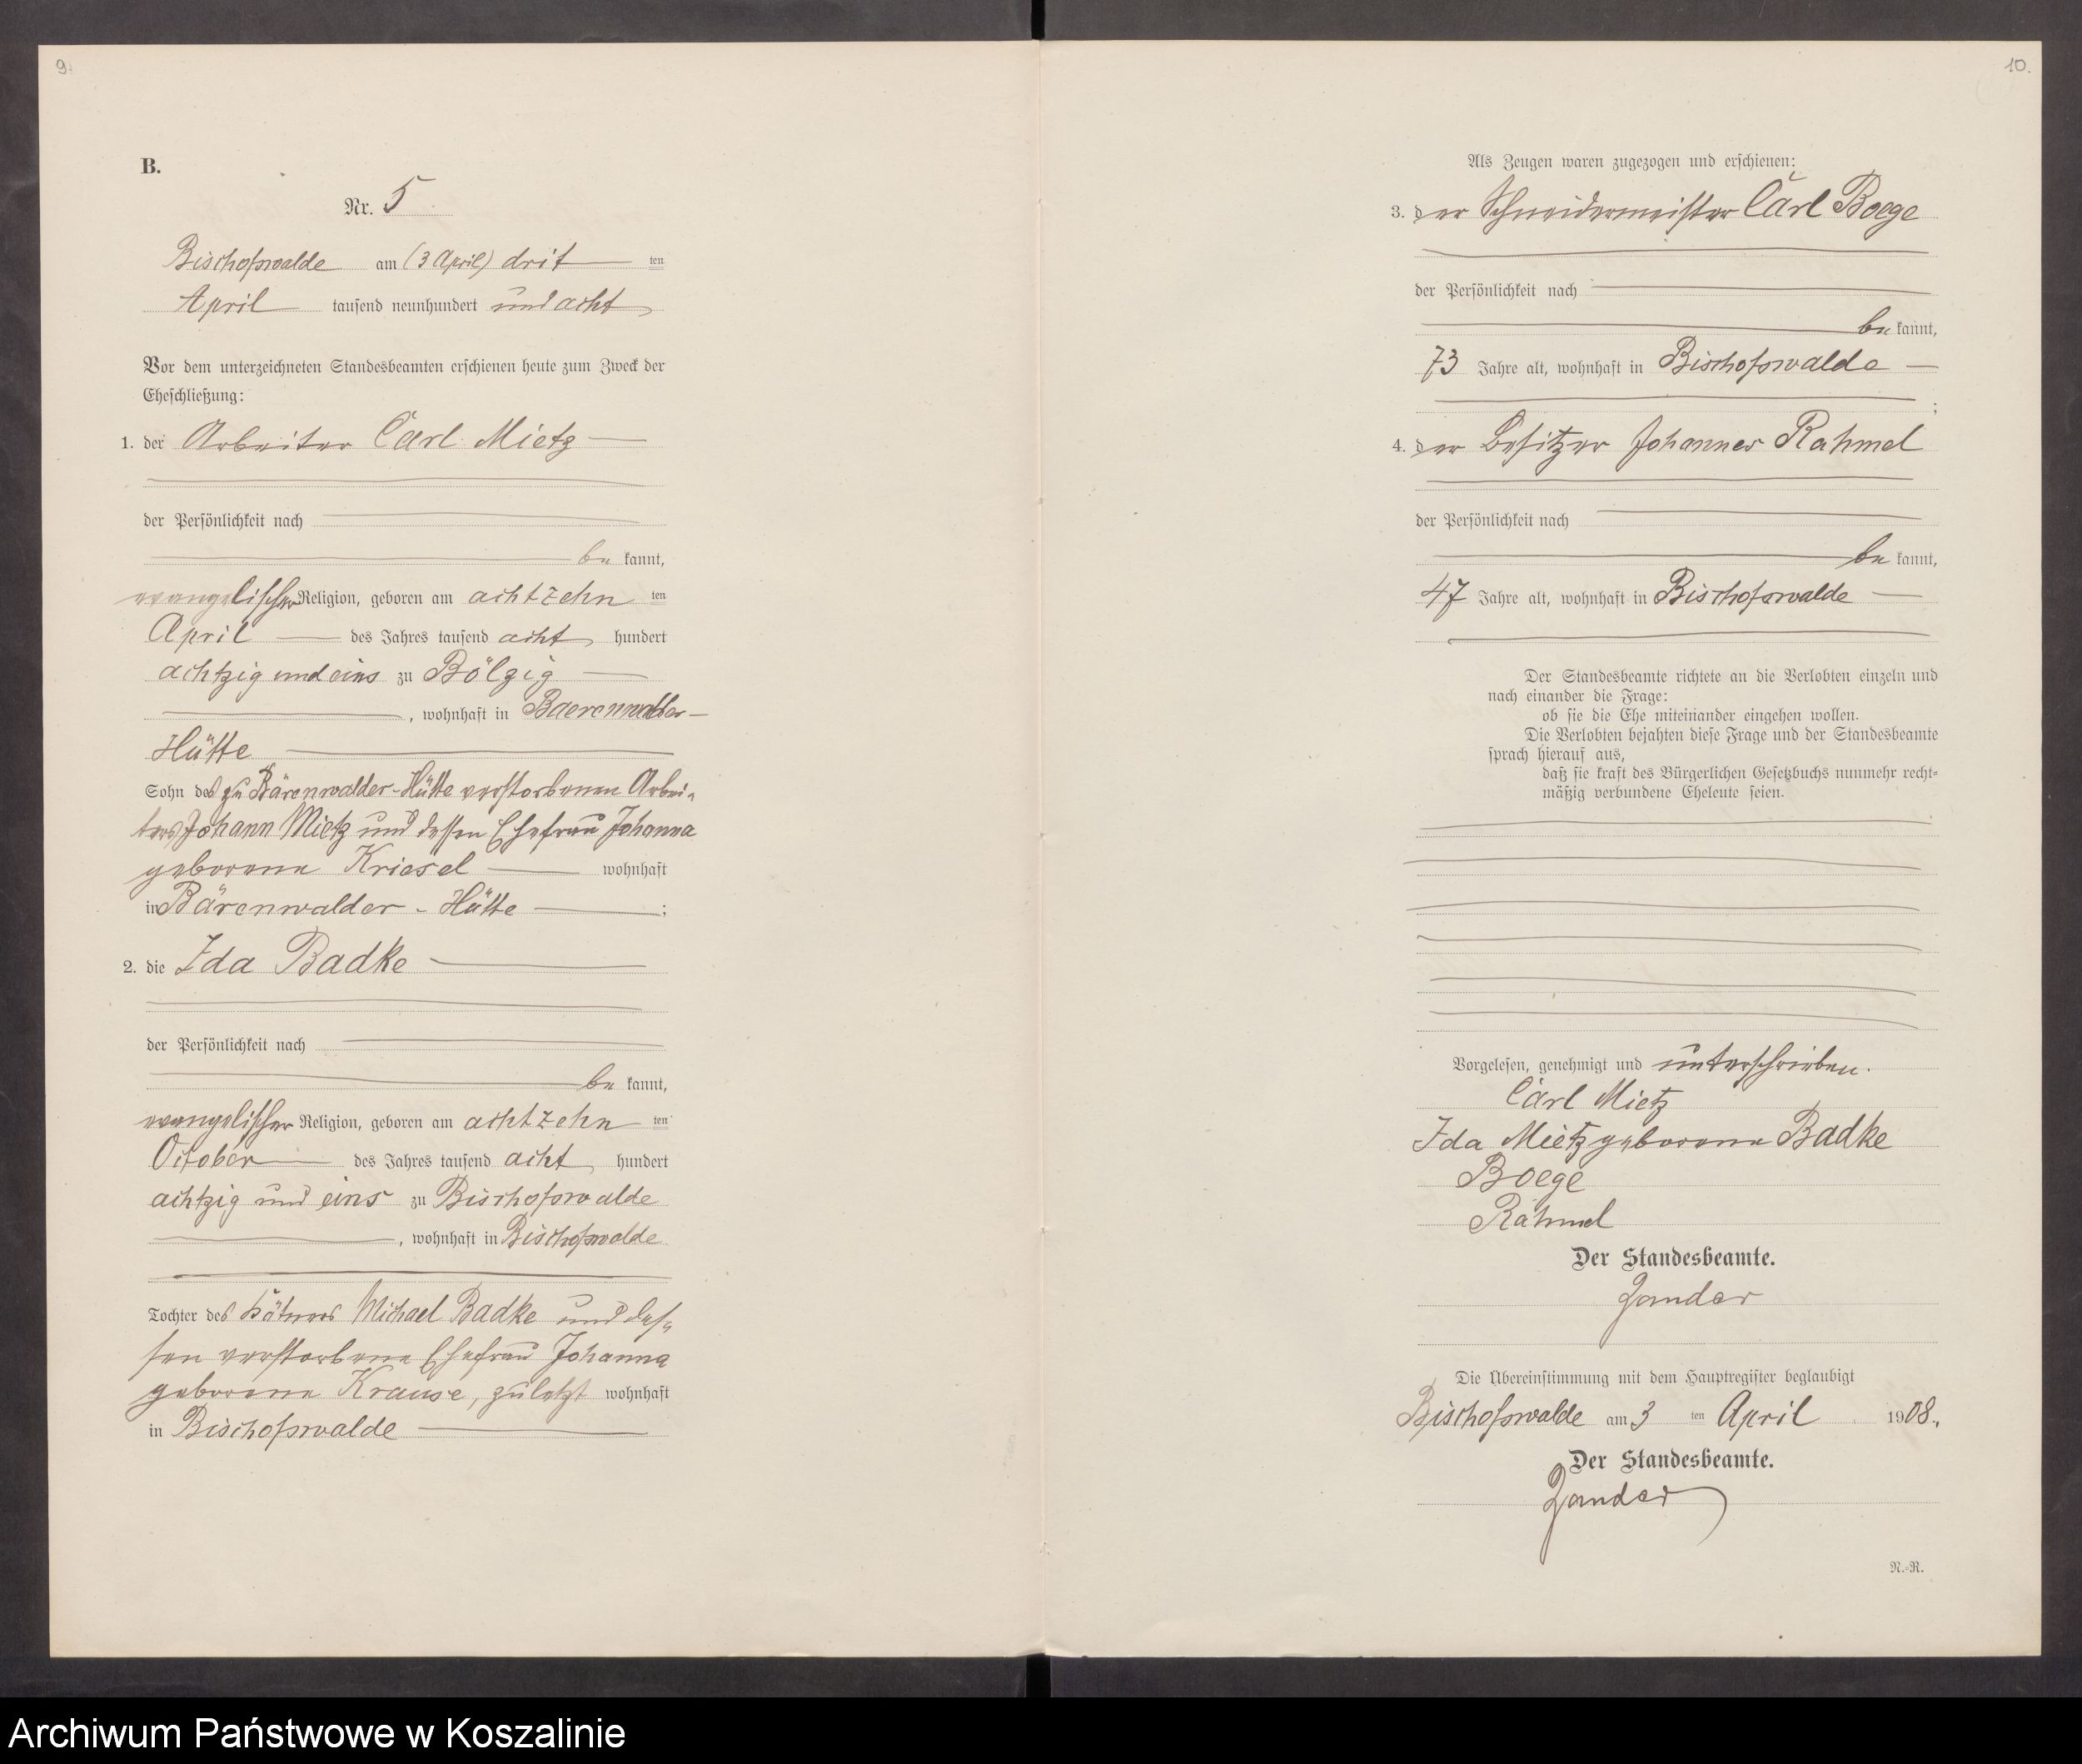 9.
B.
Nr. 5
Bischofswalde am (3 April) drit ten
April tausend neunhundert und acht
Vor dem unterzeichneten Standesbeamten erschienen heute zum Zweck der
Eheschließung:
1. der Arbeiter Carl Mietz
der Persönlichkeit nach
be kannt,
evangelischer Religion, geboren am achtzehn ten
April des Jahres tausend acht hundert
achtzig und eins zu Bölzig
, wohnhaft in Baerenwalder-
Hütte
Sohn des zu Bärenwalder-Hütte verstorbenen Arbei-
ters Johann Mietz und dessen Ehefrau Johanna
geborene Kriesel wohnhaft
in Bärenwalder-Hütte ;
2. die Ida Badke
der Persönlichkeit nach
be kannt,
evangelischer Religion, geboren am achtzehn ten
October des Jahres tausend acht hundert
achtzig und eins zu Bischofswalde
, wohnhaft in Bischofswalde
Tochter des Kätners Michael Badke und des-
sen verstorbene Ehefrau Johanna
geborene Krause, zuletzt wohnhaft
in Bischofswalde
10.
Als Zeugen waren zugezogen und erschienen:
3. der Schneidermeister Carl Boege
der Persönlichkeit nach
be kannt,
73 Jahre alt, wohnhaft in Bischofswalde
;
4. der Besitzer Johannes Rahmel
der Persönlichkeit nach
be kannt,
47 Jahre alt, wohnhaft in Bischofswalde
Der Standesbeamte richtete an die Verlobten einzeln und
nach einander die Frage:
ob sie die Ehe miteinander eingehen wollen.
Die Verlobten bejahten diese Frage und der Standesbeamte
sprach hierauf aus,
daß sie kraft des Bürgerlichen Gesetzbuchs nunmehr recht-
mäßig verbundene Eheleute seien.
Vorgelesen, genehmigt und unterschrieben.
Carl Mietz
Ida Mietz geborene Badke
Boege
Rahmel
Der Standesbeamte.
Zander
Die Übereinstimmung mit dem Hauptregister beglaubigt
Bischofswalde am 3 ten April 1908.
Der Standesbeamte.
Zander
N.-R.
Archiwum Państwowe w Koszalinie